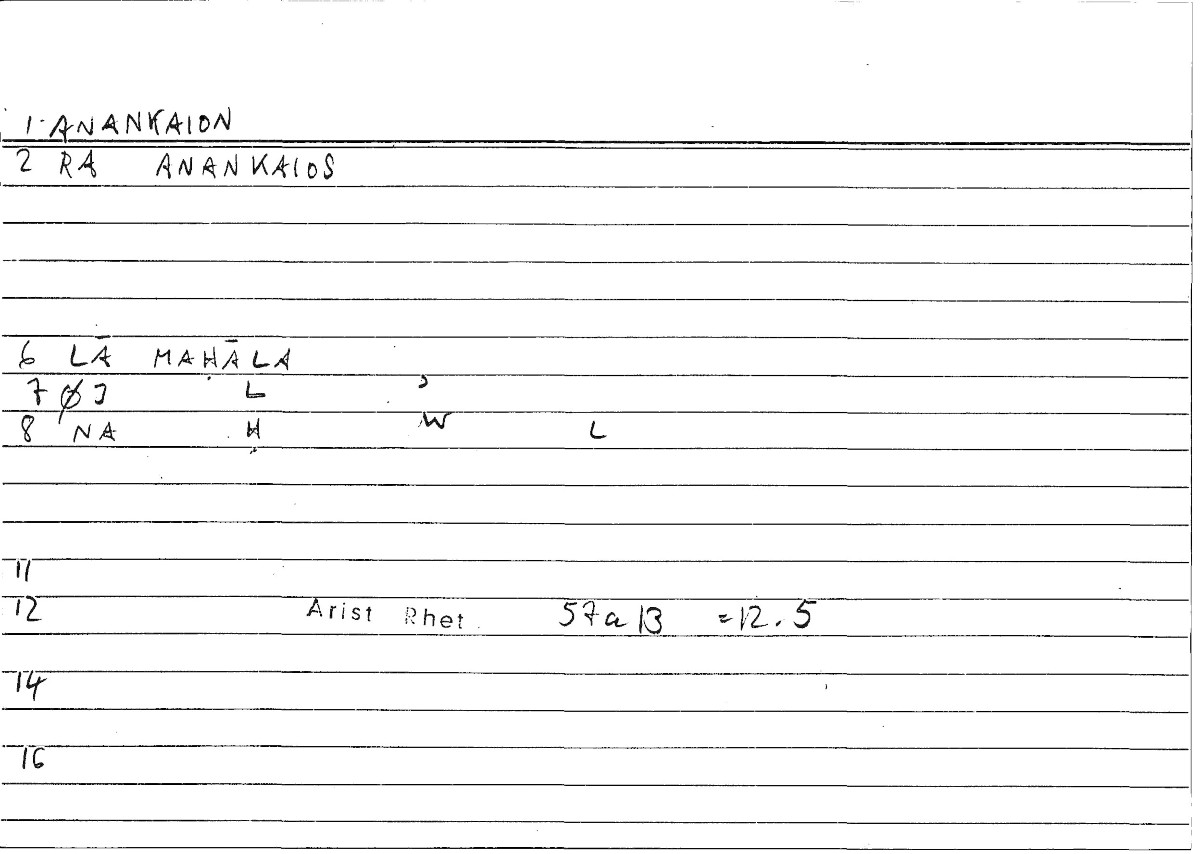 1. ANANKAION
2 RA ANANKAIOS
6 LĀ MAḤĀLA
7 ØJ L ʾ
8 NA Ḥ W L
11
12 Arist Rhet. 57a13 =12.5
14
16